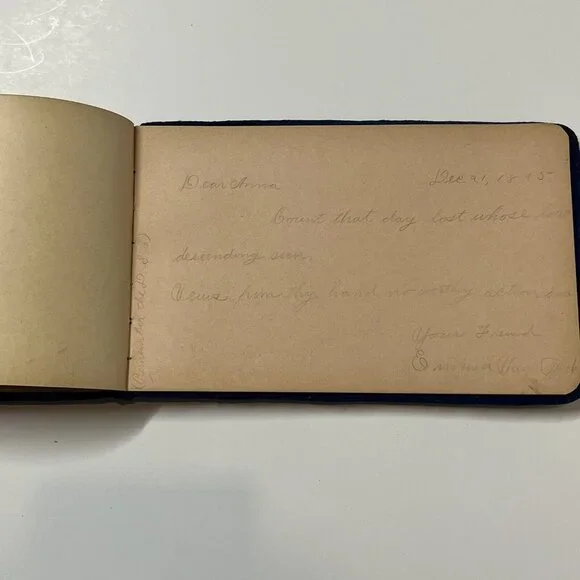 Dear Anna Dec 21, 1895
Count that day lost whose low
decending sun,
Views from thy hand no worthy action
Your Friend
Emma